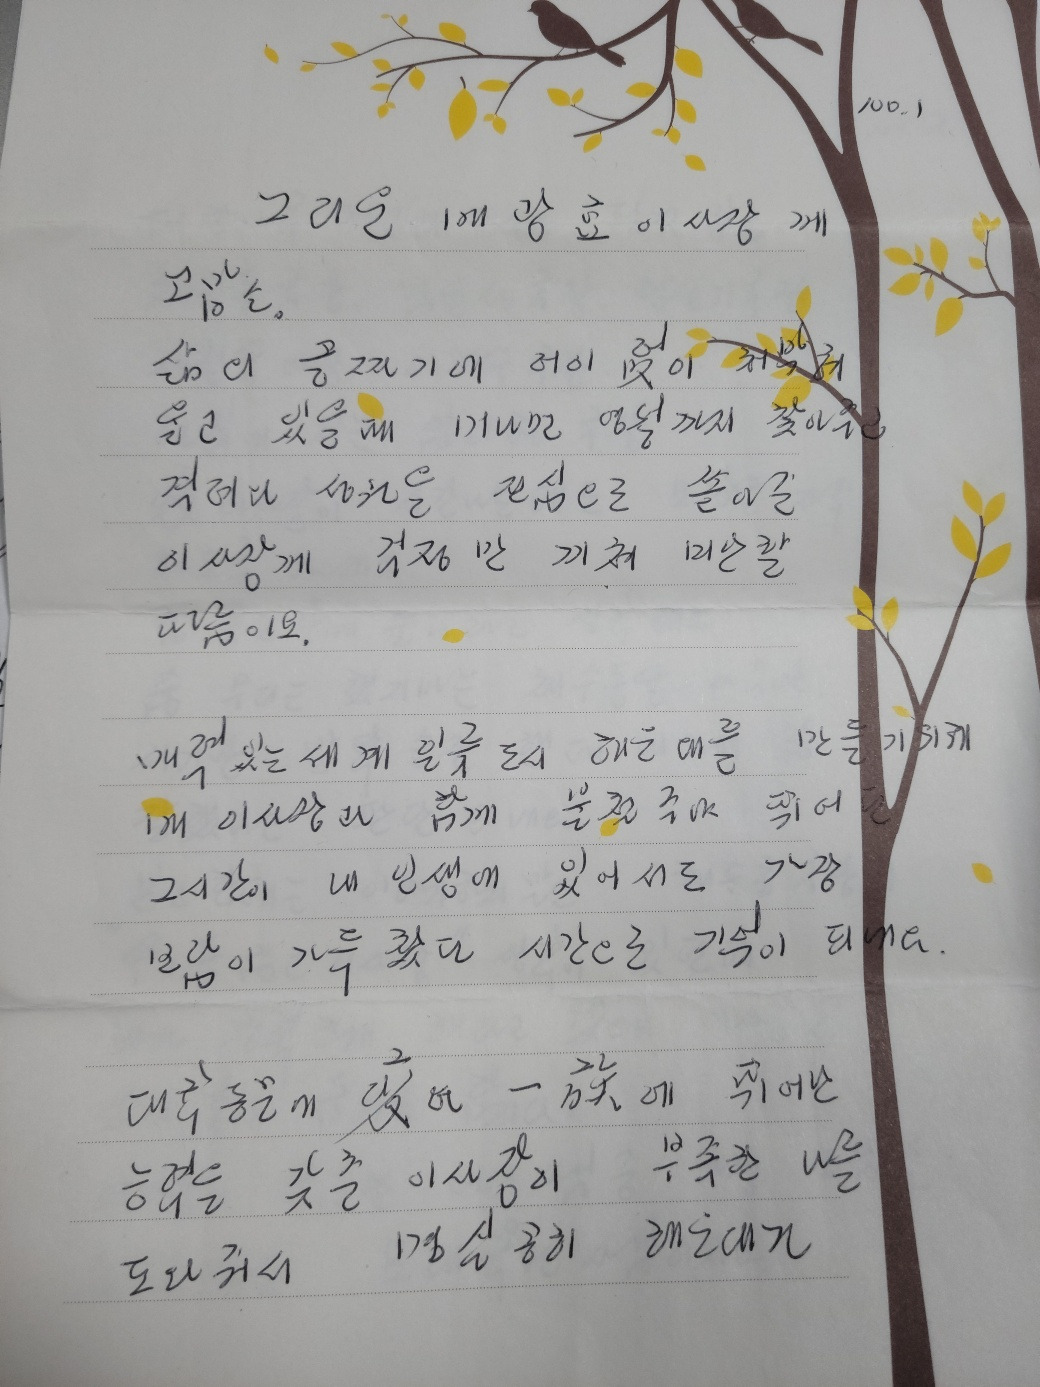 NO.1
그리운 배광효 이사장께
고맙소.
삶의 골짜기에 어이없이 처박혀
울고 있을때 머나먼 영월까지 찾아주고
격려와 성원을 진심으로 쏟아준
이사장께 걱정만 끼쳐 미안할
따름이요.
매력있는 세계 일류 도시 해운대를 만들기위해
배 이사장과 함께 불철주야 뛰어 온
그시간이 내 인생에 있어서도 가장
보람이 가득찼던 시간으로 기억이 되네요.
대학동문에 一族에 뛰어난
능력을 갖춘 이사장이 부족한 나를
도와줘서 명실공히 해운대가